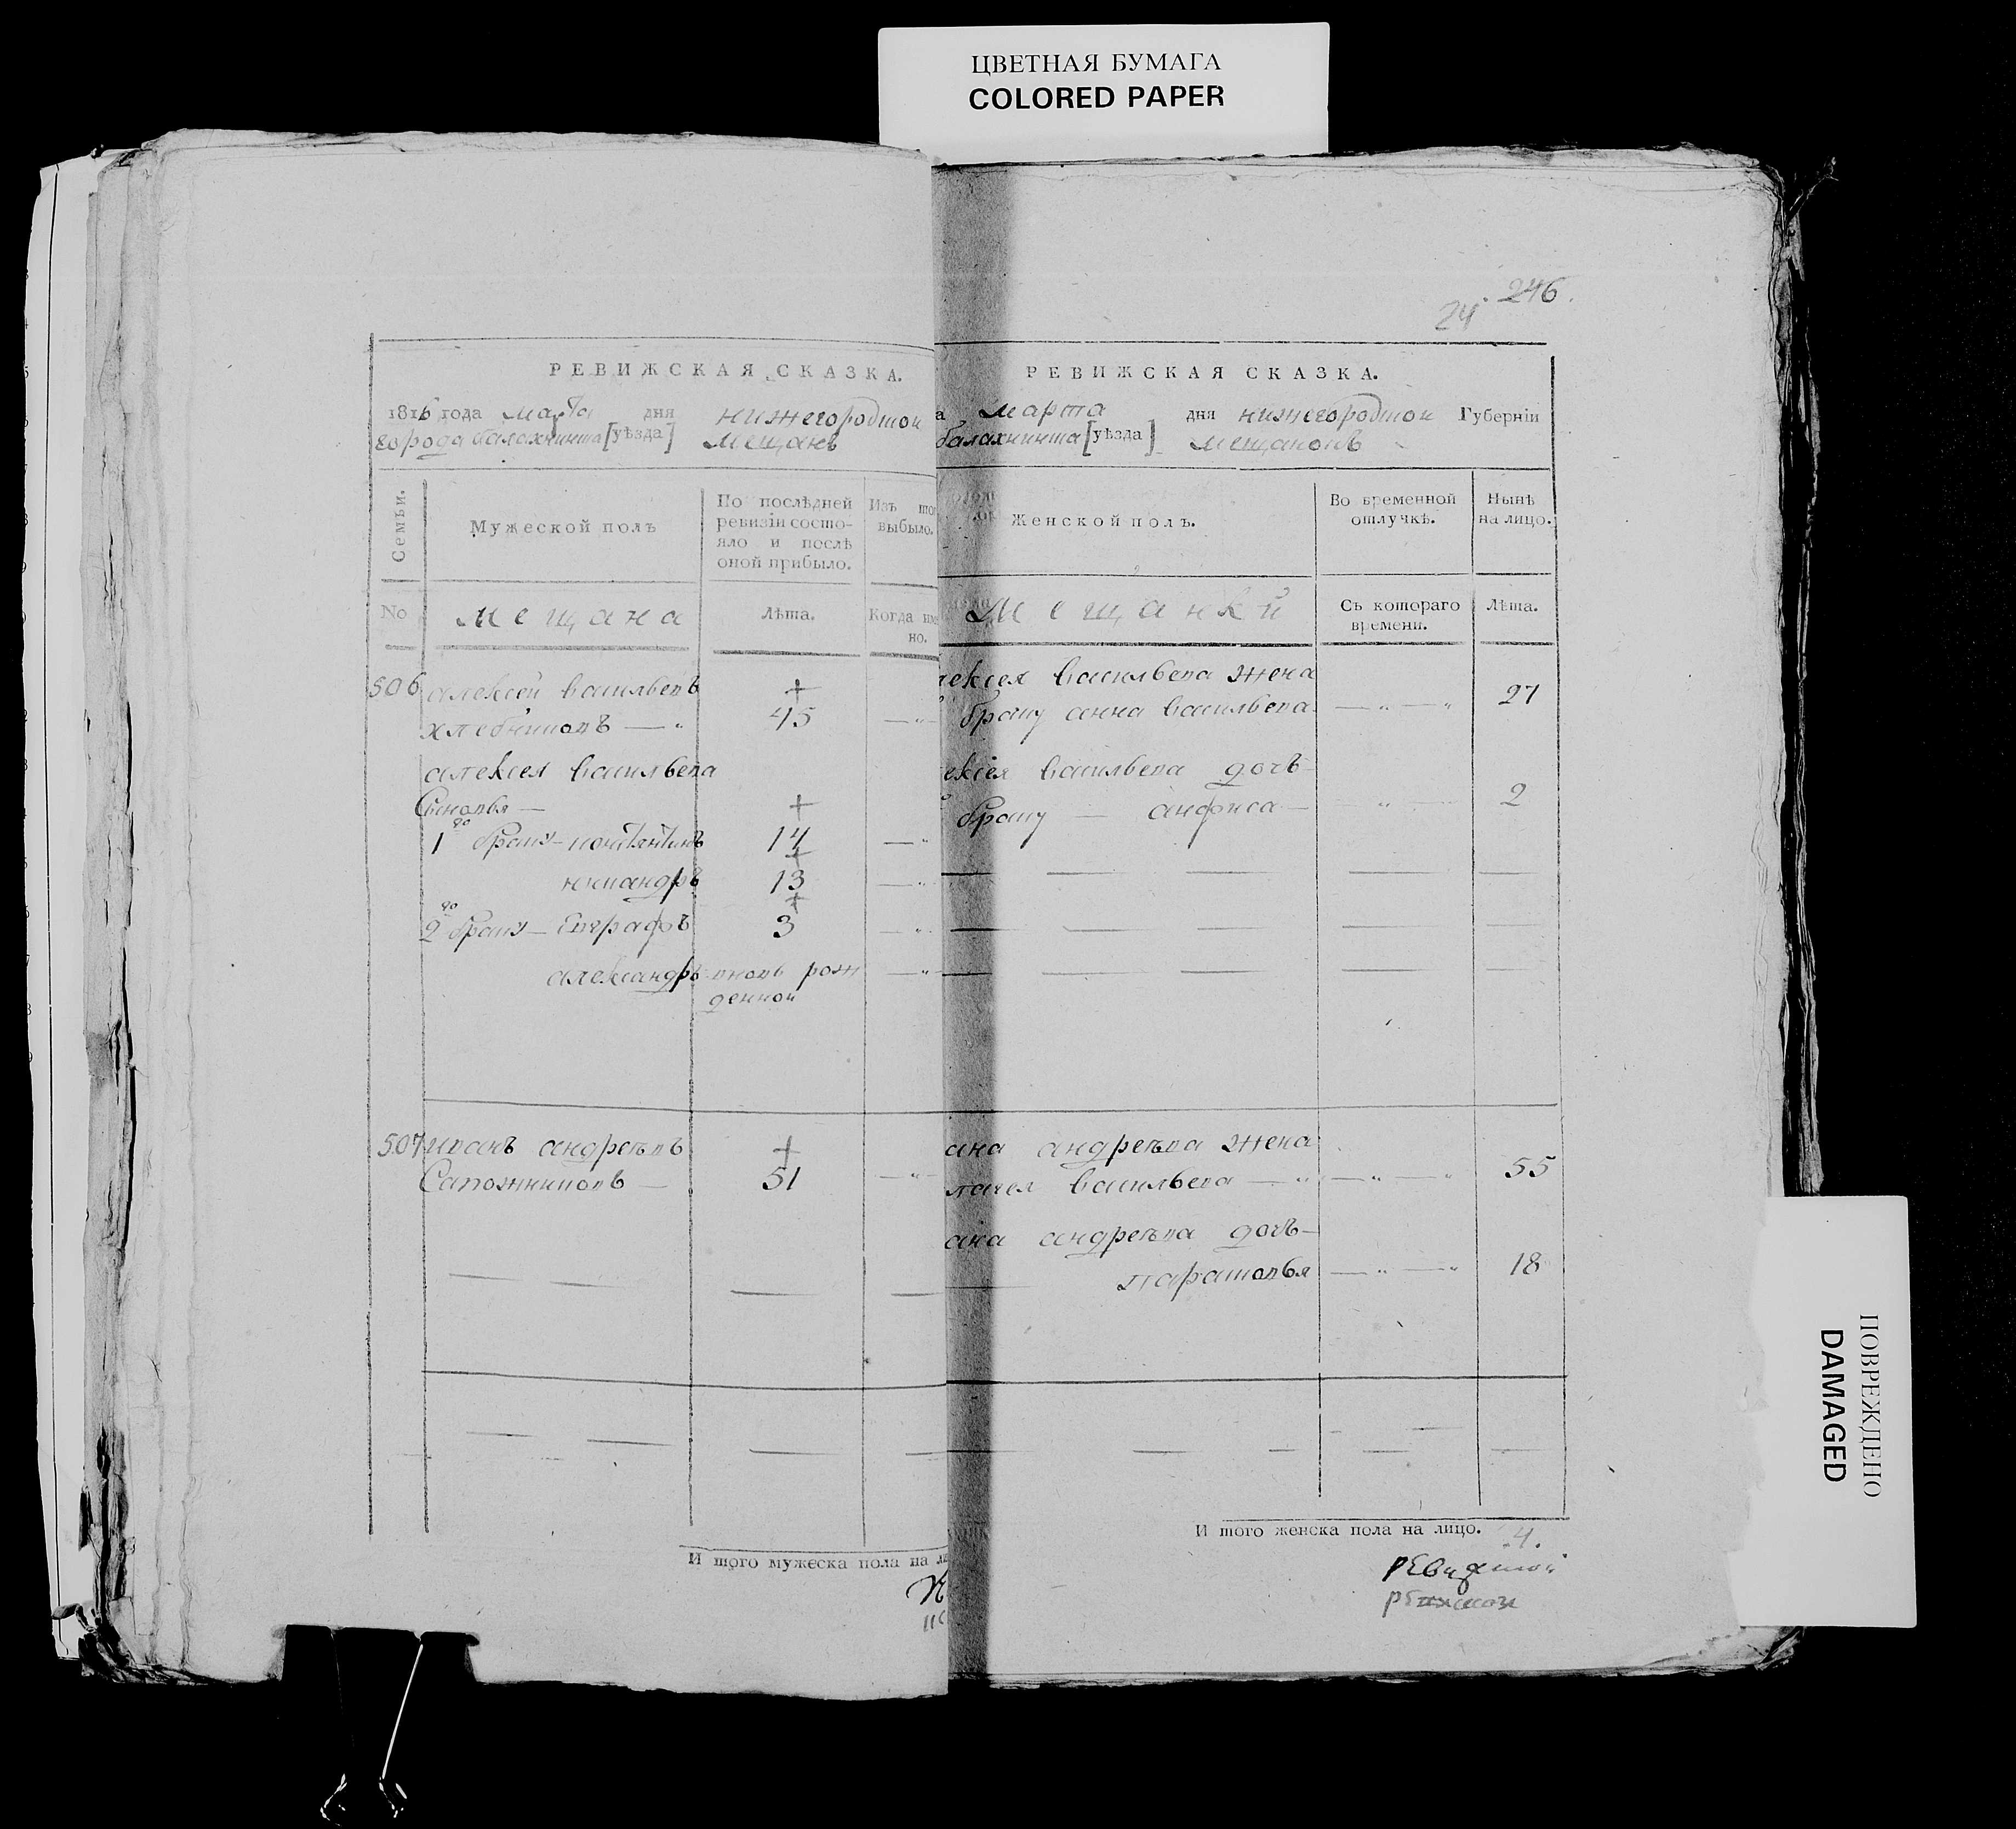 ЦВЕТНАЯ БУМАГА
COLORED PAPER
246.
24
РЕВИЖСКАЯ СКАЗКА.
1816 года марта дня нижегородской
города балахнинска [уѣзда] мещанъ
Семьи.
Мужеской полъ
По послѣдней
ревизіи состо-
яло и послѣ
оной прибыло.
Изъ
выбыло.
No
мещана
Лѣта.
Когда
но.
506 алексей васильевъ
хлебниковъ — 45
алексея васильева
Сыновья —
1го браку — констянтинъ 14
никандръ 13
2го браку — Евграфъ 3
александръ вновь рож
денной
507 иванъ андреевъ
Сапожниковъ — 51
И того мужеска пола на
РЕВИЖСКАЯ СКАЗКА.
марта дня нижегородской Губерніи
балахнинска [уѣзда] мещановъ
Женской полъ.
Во временной
отлучкѣ.
Нынѣ
на лицо.
Мещанкй
Съ котораго
времени.
Лѣта.
лексея васильева жена
браку анна васильева 27
ексея васильева дочь
браку — анфиса — 2
ана андреева жена
васильева — 55
ана андреева дочь —
парасковья 18
И того женска пола на лицо. 4.
ПОВРЕЖДЕНО
DAMAGED